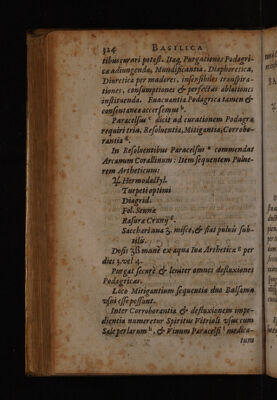 324 BASILICA
tibus curari potest. Itaq, Purgationes Podagri-
cæ adiungenda, Mundificantia, Diaphoretica,
Diuretica per madores, insensibiles transpira-
tiones, consumptiones & perfectas ablationes
instituenda. Euacuantia Podagrica tamen &
consentanea accersemus h.
Paracelsus dicit ad curationem Podagræ
requiri tria, Resoluentia, Mitigantia, Corrobo-
rantia
In Resoluentibus Paracelsus commendat
Arcanum Corallinum: Item sequentem Pulue-
rem Artheticum:
♃ Hermodactyl.
Turpeti optimi
Diagrid.
Fol. Sennæ
Rasuræ Cranij
Sacchari ana ʒ. misce, & fiat puluis sub-
tilis.
Dosis mane ex aqua Iuæ Artheticæ per
dies 3. vel 4.
Purgat securè & leniter omnes defluxiones
Podagricas.
Loco Mitigantium sequentia duo Balsama
vsui esse possunt.
Inter Corroborantia & defluxionem impe-
dientia numeratur Spiritus Vitrioli vsus cum
Sale perlarum h, & Vinum Paracelsi medica-
tum